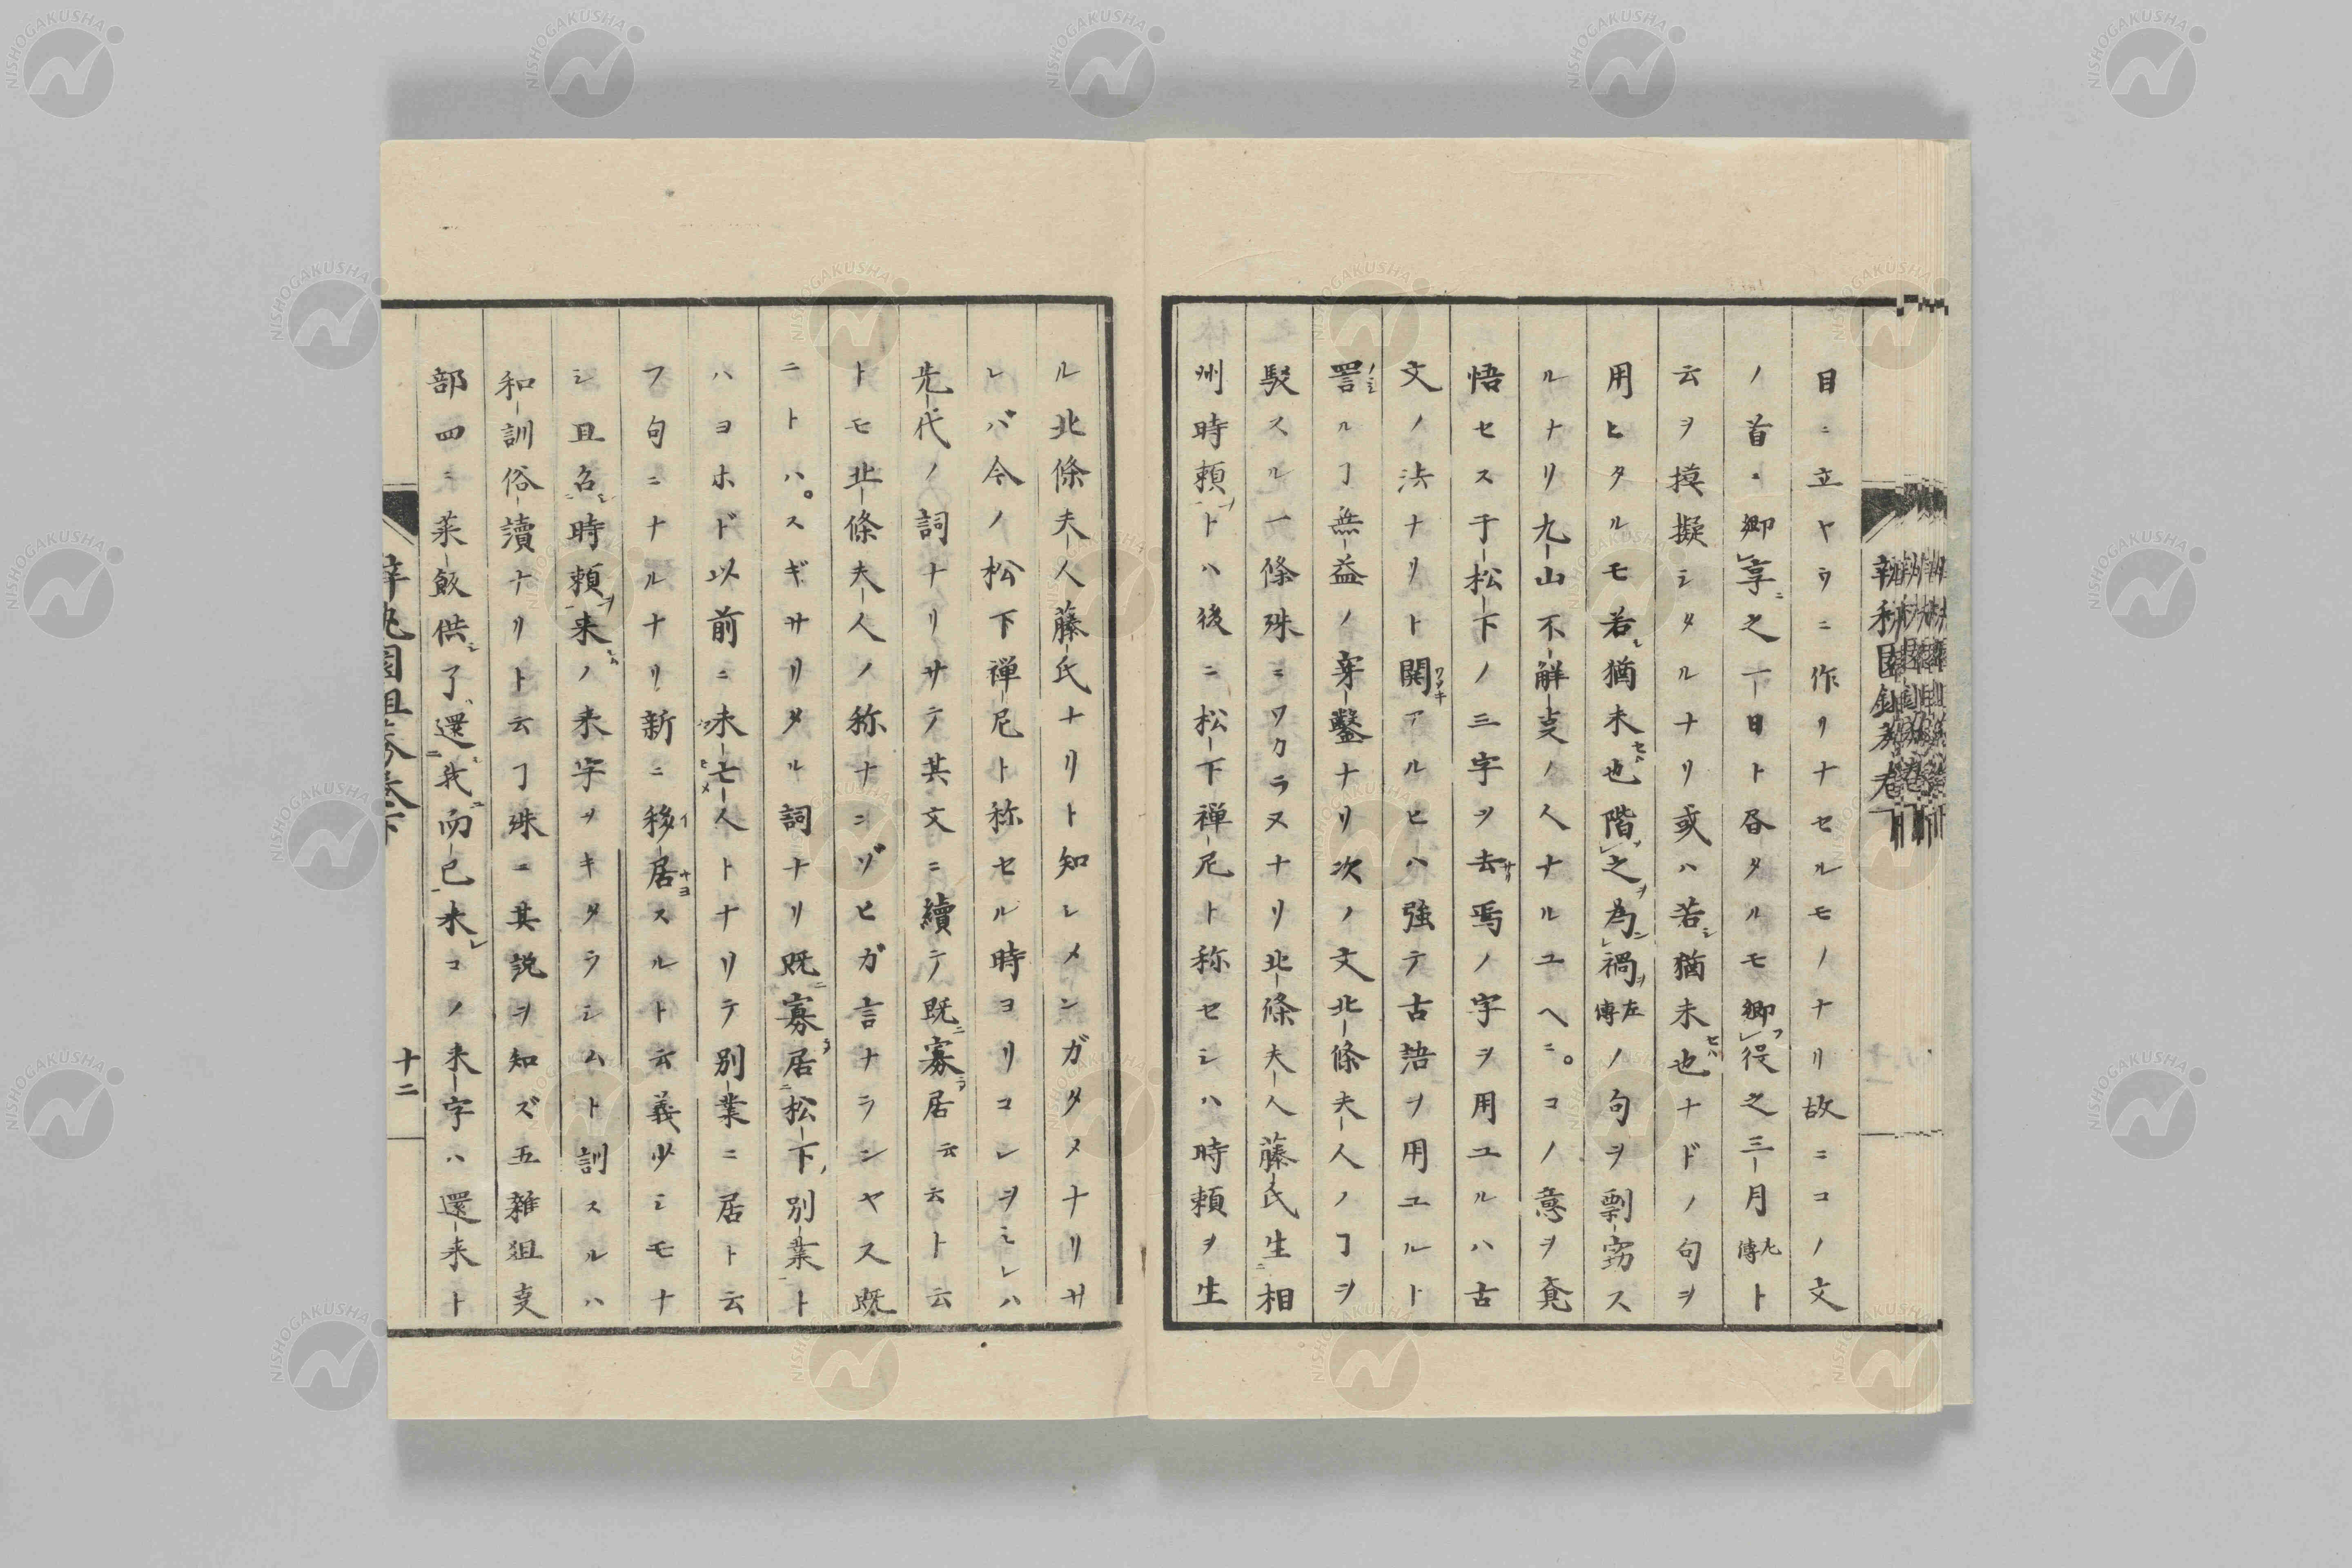 目ニ立ヤウニ作リナセルモノナリ故ニコノ文
ノ首ニ郷享之一日ト呑タルモ郷役之三月左傳ト
云ヲ摸擬シタルナリ或ハ若猶未也ナドノ句ヲ
用ヒタルモ若猶未也階之為禍左傳ノ句ヲ剽窃ス
ルナリ九山不解事ノ人ナルユヘニ。コノ意ヲ
悟セス于松下ノ三字ヲ去焉ノ字ヲ用ユルハ古
文ノ法ナリト関アルヒハ強テ古語ヲ用ユルト
詈ルヿ無益ノ穿鑿ナリ次ノ文北條夫人ノヿヲ
駁スル一條殊ニワカラヌナリ北條夫人藤氏生相
州時頼トハ後ニ松下禅尼ト称セシハ時頼ヲ生
ル北條夫人藤氏ナリト知シメンガタメナリサ
レバ今ノ松下禅尼ト称セル時ヨリコレヲミレハ
先代ノ詞ナリサテ其文ニ續テ既寡居云云ト云
トモ北條夫人ノ称ナニゾヒガ言ナランヤス既
ニトハ。スギサリタル詞ナリ既寡居松下別業ト
ハヨホド以前ニ未亡人トナリテ別業ニ居ト云
フ句ニナルナリ新ニ移居スルト云義少シモナ
シ且召時頼来ノ来字ヲキタラシムト訓スルハ
和訓俗讀ナリト云ヿ殊ニ其説ヲ知ズ五雜俎支
部四ニ菜飯供了還我而已来コノ来字ハ還来ト
十二